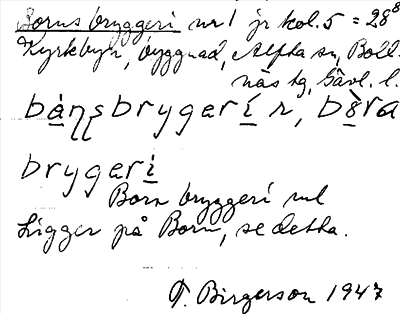 Borns bryggeri nr 1 jr kol. 5 = 28⁸
Kyrkbyn, byggnad, Alfta sn, Boll-
näs tg, Gävl. l.
bànsbrygerí n, bò̱ra
brygeri̱
Born bryggeri ml
Ligger på Born, se detta.
T. Birgerson 1947